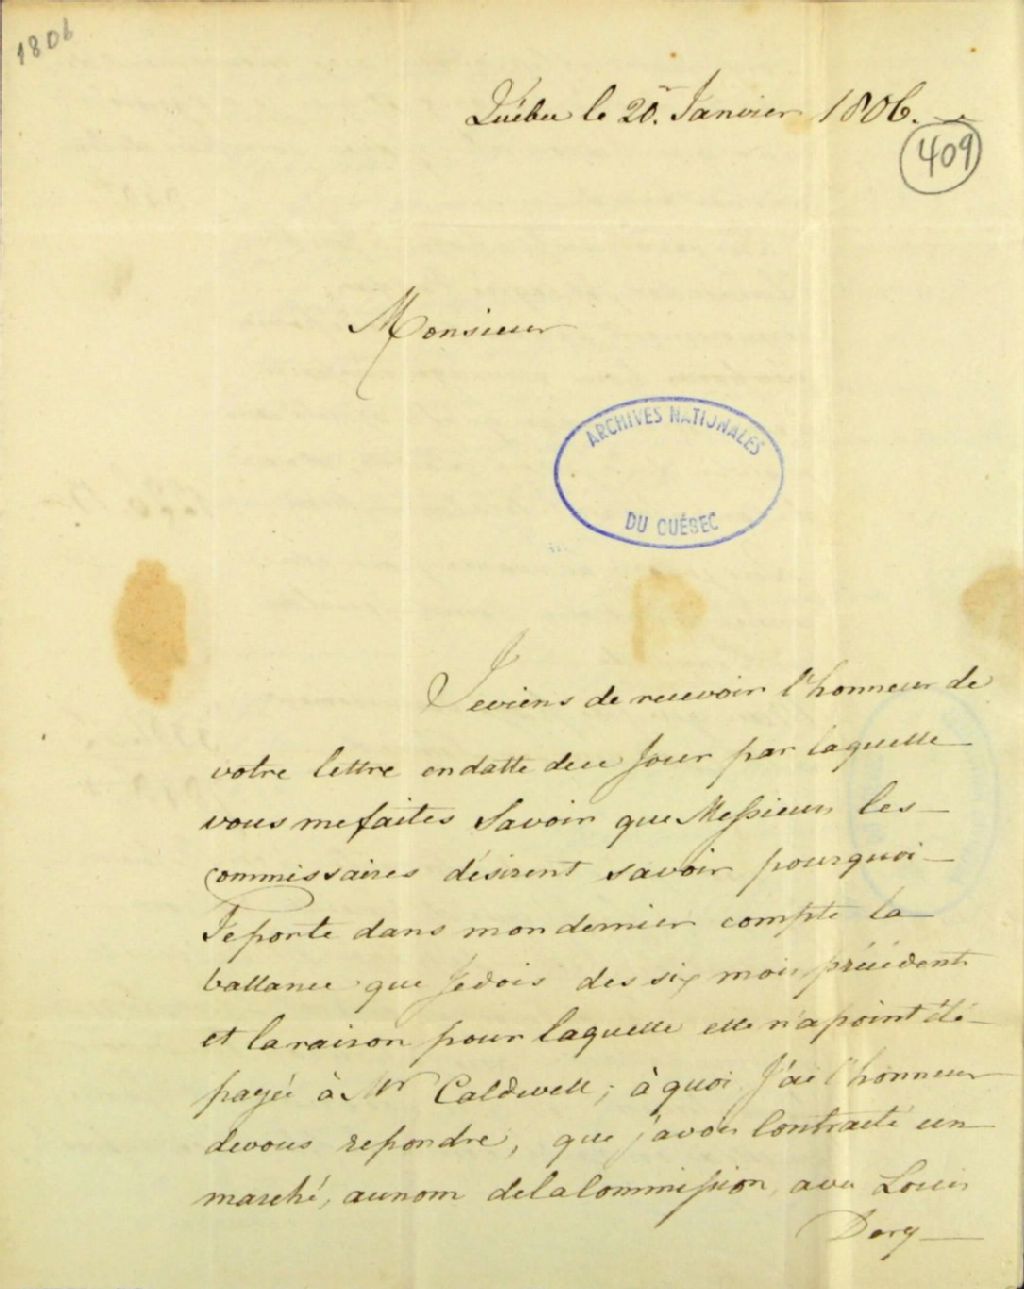 1806
Québec le 20. Janvier 1806.
409
Monsieur
ARCHIVES NATIONALES
DU QUÉBEC
Je viens de recevoir l'honneur de
votre lettre en datte de ce Jour par laquelle
vous me faites Savoir que Messieurs les
commissaires désirent savoir pourquoi
Je porte dans mon dernier compte la
ballance que Je dois des six mois précédents
et la raison pour laquelle elle n'a point été
payée à Mr Caldwell; à quoi J'ai l'honneur
de vous repondre, que j'avois Contracté un
marché, au nom de la Commission, avec Louis
Dory